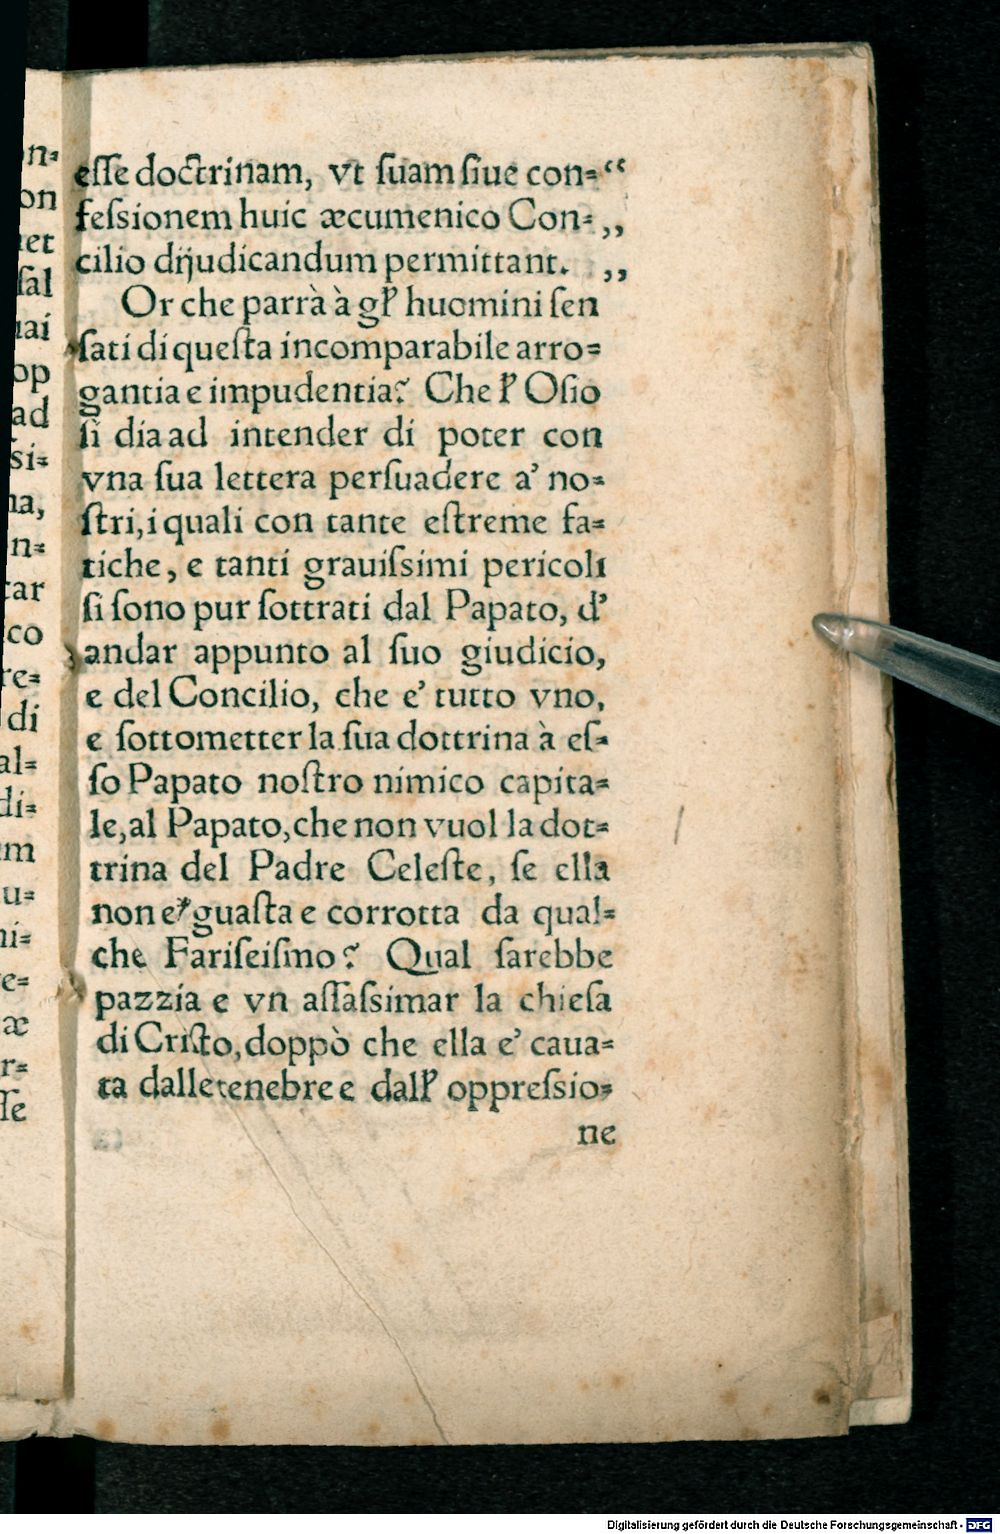 eſſe doctrinam, vt ſuam ſiue con=“
feſsionem huic æcumenico Con= ,,
cilio dijudicandum permittant. ,,
Or che parrà à gl’ huomini ſen
ſati di queſta incomparabile arro=
gantia e impudentia? Che l’ Oſio
ſi dia ad intender di poter con
vna ſua lettera perſuadere a’ no=
ſtri, i quali con tante eſtreme fa=
tiche, e tanti grauiſsimi pericoli
ſi ſono pur ſottrati dal Papato, d’
andar appunto al ſuo giudicio,
e del Concilio, che e’ tutto vno,
e ſottometter la ſua dottrina à eſ=
ſo Papato noſtro nimico capita=
le, al Papato, che non vuol la dot=
trina del Padre Celeſte, ſe ella
non e’ guaſta e corrotta da qual=
che Fariſeiſmo? Qual ſarebbe
pazzia e vn aſſaſsimar la chieſa
di Criſto, doppò che ella e’ caua=
ta dalle tenebre e dall’ oppreſsio=
ne
Digitalisierung gefördert durch die Deutsche Forschungsgemeinschaft - DFG